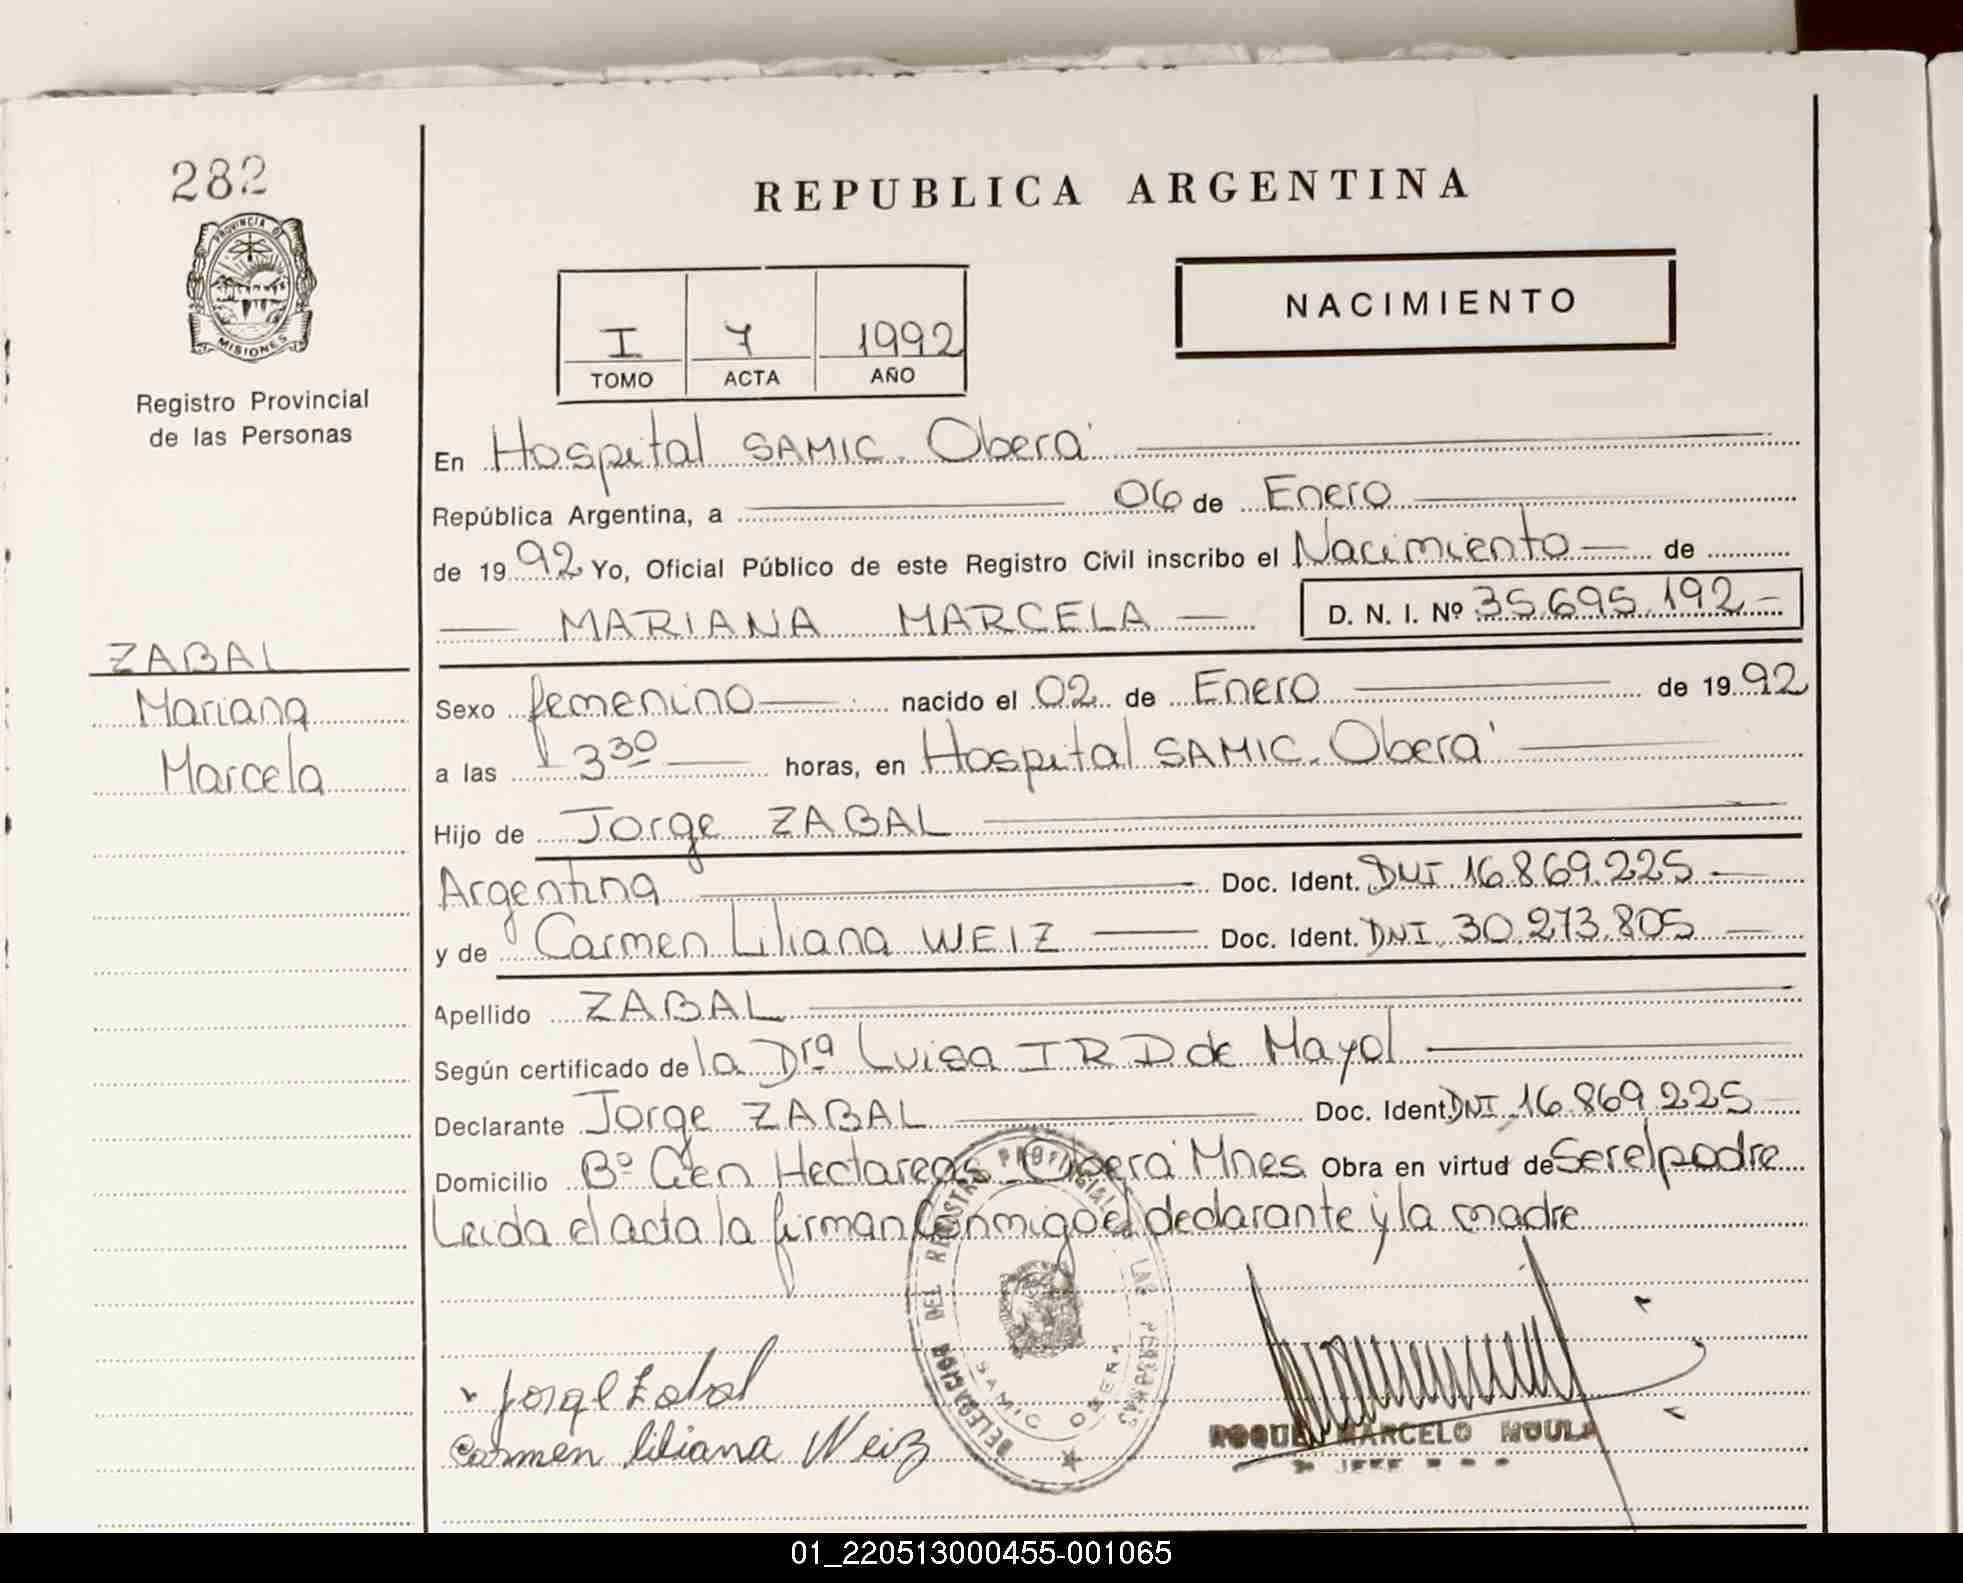 282
PROVINCIA D
MISIONES
Registro Provincial
de las Personas
ZABAL
Mariana
Marcela
REPUBLICA ARGENTINA
I 7 1992
TOMO ACTA AÑO
NACIMIENTO
En Hospital SAMIC. Oberá
República Argentina, a 06 de Enero
de 1992 Yo, Oficial Público de este Registro Civil inscribo el Nacimiento de
MARIANA MARCELA D. N. I. Nº 35.695.192
Sexo femenino nacido el 02 de Enero de 1992
a las 3 30 horas, en Hospital SAMIC. Oberá
Hijo de Jorge ZABAL
Argentina Doc. Ident. DNI 16.869.225
y de Carmen Liliana WEIZ Doc. Ident. DNI 30.273.805
Apellido ZABAL
Según certificado de la Dra Luisa I R D de Mayol
Declarante Jorge ZABAL Doc. Ident. DNI 16.869.225
Domicilio Bº Cien Hectareas Oberá Mnes. Obra en virtud de Ser el padre
Leida el acta la firman Conmigo el declarante y la madre
DELEGACION DEL REGISTRO PROVINCIAL LAS PERSONAS
SAMIC OBERA
Jorge Zabal
Carmen liliana Weiz
ROQUE MARCELO MOULA
JEFE
01_220513000455-001065